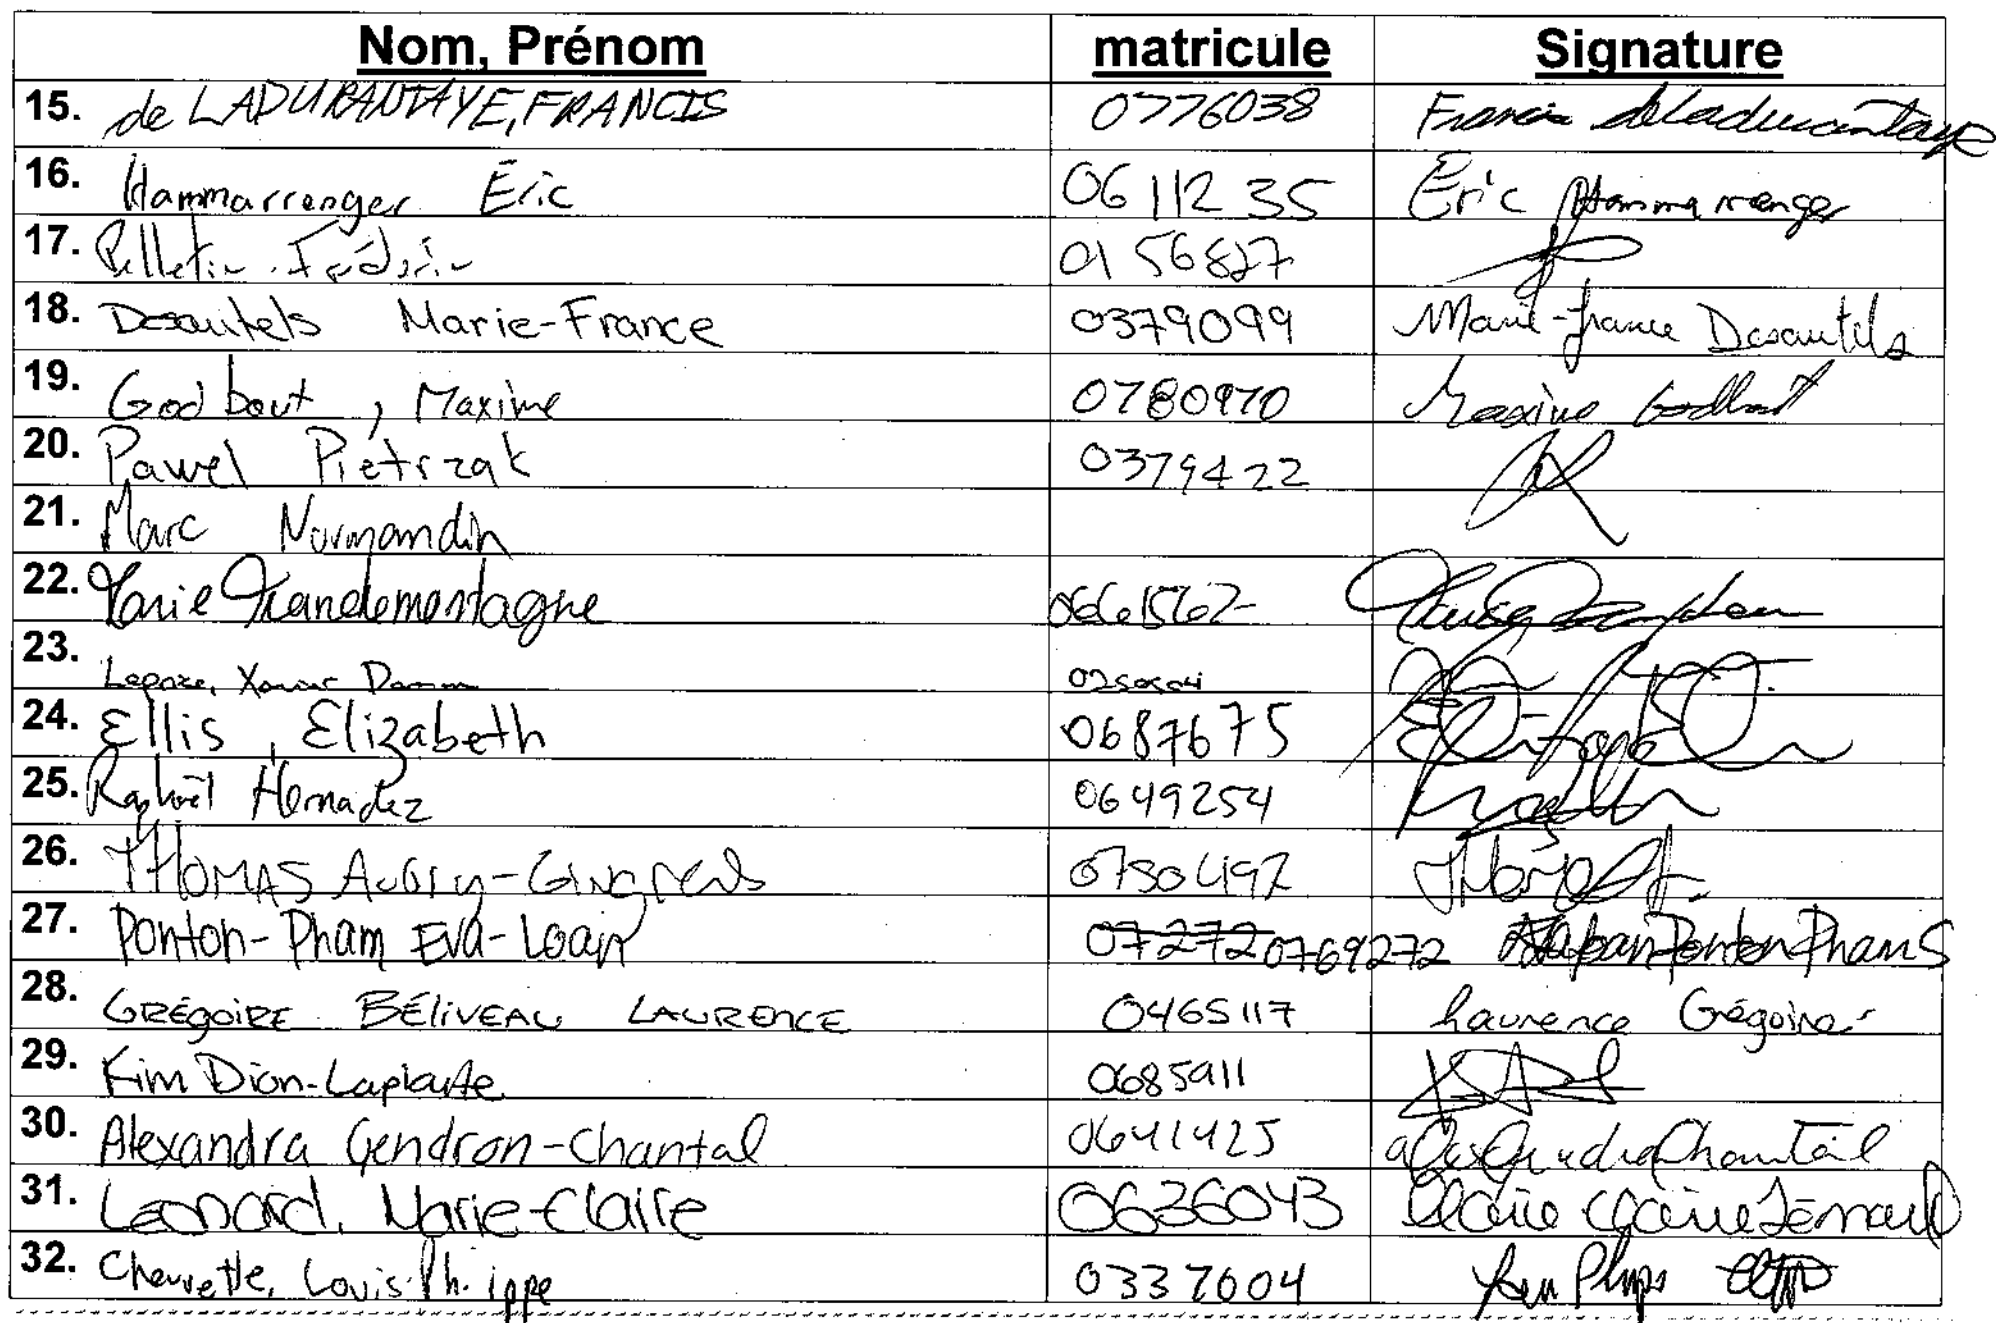 Nom, Prénom matricule Signature
15. de LADURANTAYE, FRANCIS 0776038 Francis de Ladurantaye
16. Hammarrenger Éric 0611235 Éric Hammarrenger
17. Pelletier Frédéric 0156827
18. Desautels Marie-France 0379099 Marie-france Desautels
19. Godbout, Maxime 0780970 Maxime Godbout
20. Pawel Pietrzak 0379422
21. Marc Normandin
22. Marie Grandemontagne
23. Xavier
24. Ellis, Elizabeth 0687675
25. Raphaël Hernadez 0649254
26. THOMAS Aubry-Gingras
27. Ponton-Pham Eva-Loan 07272 0769272 Ponton Pham
28. GRÉGOIRE BÉLIVEAU LAURENCE 0465117 Laurence Grégoire
29. Kim Dion-Laplante 0685911
30. Alexandra Gendron-Chantal 0641425 alexandra Chantal
31. Leonard, Marie-Claire 0636043
32. Chevrette, Louis-Philippe 0337604